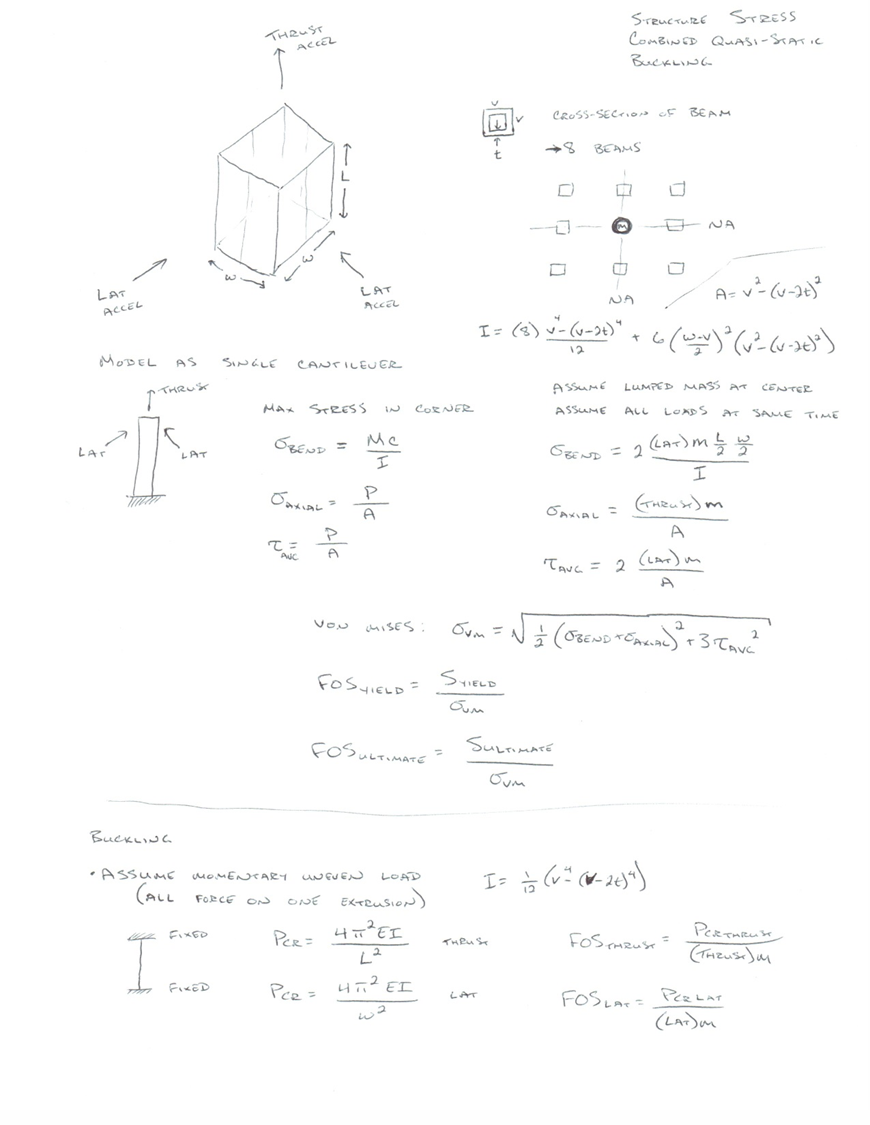 STRUCTURE STRESS
COMBINED QUASI-STATIC
BUCKLING
THRUST
ACCEL
L
w
w
LAT
ACCEL
LAT
ACCEL
v
v
t
CROSS-SECTION OF BEAM
→ 8 BEAMS
m
NA
NA
A = v² - (v-2t)²
I = (8) (v⁴ - (v-2t)⁴)/12 + 6 ((w-v)/2)² (v² - (v-2t)²)
MODEL AS SINGLE CANTILEVER
THRUST
LAT
LAT
MAX STRESS IN CORNER
σBEND = Mc/I
σAXIAL = P/A
τAVG = P/A
ASSUME LUMPED MASS AT CENTER
ASSUME ALL LOADS AT SAME TIME
σBEND = 2 (LAT)m L/2 w/2 / I
σAXIAL = (THRUST)m / A
τAVG = 2 (LAT)m / A
VON MISES: σVM = √(½ (σBEND + σAXIAL)² + 3τAVG²)
FOSYIELD = SYIELD / σVM
FOSULTIMATE = SULTIMATE / σVM
BUCKLING
• ASSUME MOMENTARY UNEVEN LOAD
(ALL FORCE ON ONE EXTRUSION)
I = 1/12 (v⁴ - (v-2t)⁴)
FIXED
FIXED
PCR = 4π²EI / L² THRUST
FOSTHRUST = PCRTHRUST / (THRUST)m
PCR = 4π²EI / w² LAT
FOSLAT = PCRLAT / (LAT)m